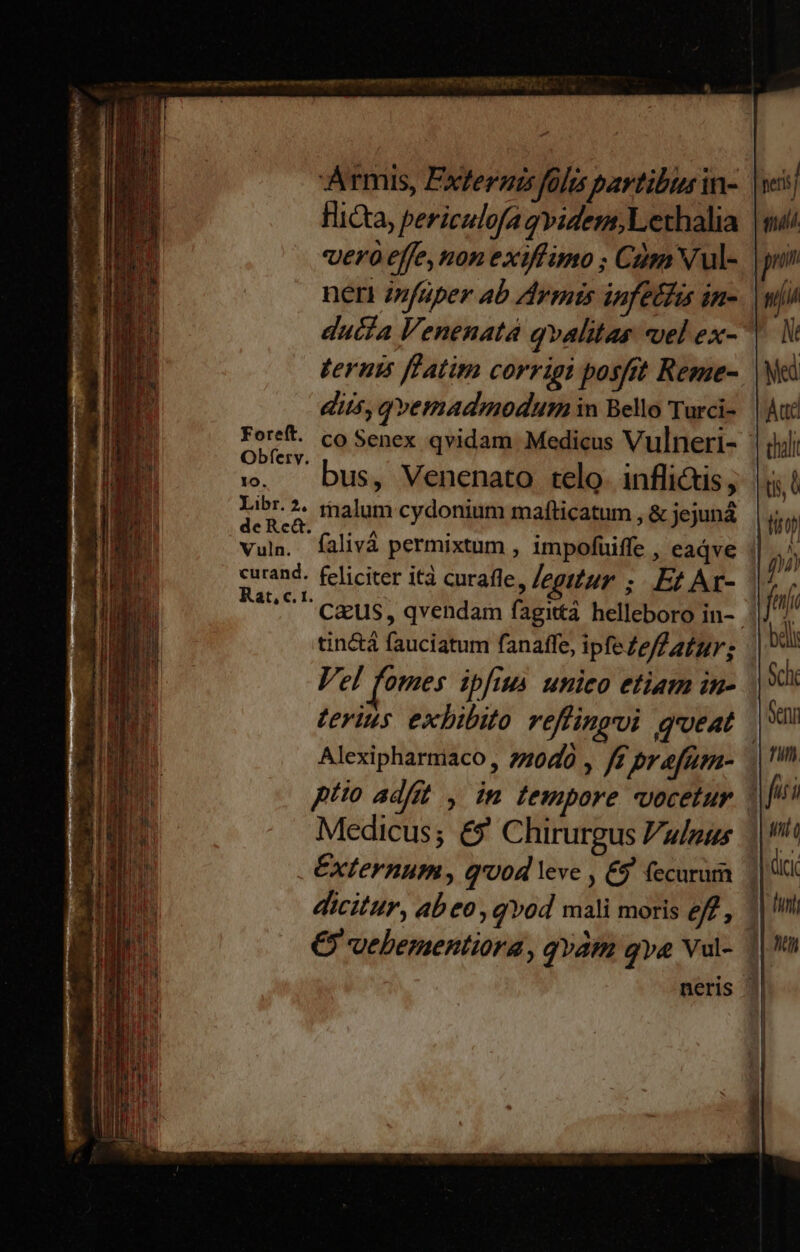 Armis, Externis ſolis partibus in-
flicta, periculoſa qvidem, Lethalia
verò eſſe, non exiſtimo ; Cùm Vul-
neri inſuper ab Armis infectis in-
ducta Venenatà qvalitas vel ex-
ternis ſtatim corrigi posſit Reme-
diis, qvemadmodum in Bello Turci-
co Senex qvidam Medicus Vulneri-
bus, Venenato telo inflictis,
malum cydonium maſticatum, & jejunâ
ſalivâ permixtum, impoſuiſſe, eaqve
feliciter ità curaſſe, legitur ; Et Ar-
cæus, qvendam ſagittâ helleboro in-
tinctâ ſauciatum ſanaſſe, ipſe teſtatur;
Vel fomes ipſius unico etiam in-
terius exhibito reſtingvi qveat
Alexipharmaco, modò, ſi præſum-
ptio adſit, in tempore vocetur
Medicus; & Chirurgus Vulnus
Externum, qvod leve, & ſecurum
dicitur, ab eo, qvod mali moris eſt,
& vehementiora, qvàm qvæ Vul-
neris
Foreſt.
Obſerv.
10.
Libr. 2.
de Rect.
Vuln.
curand.
Rat, c. 1.